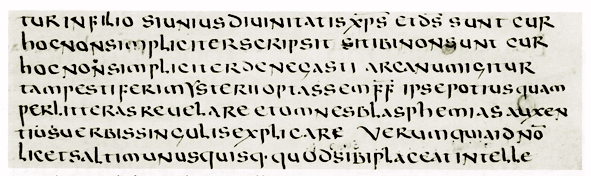 tur in filio si unius diuinitatis xp̄s et d̄s sunt cur
hoc non simpliciter scripsit si tibi non sunt cur
hoc non simpliciter denegasti arcanum igitur
tam pestiferi mysterii optassem f̄f̄ ipse potius quam
per litteras reuelare et omnes blasphemias auxen
tiis uerbis singulis explicare uerum quia id nō
licet saltim unusquisq· quod sibi placeat intelle